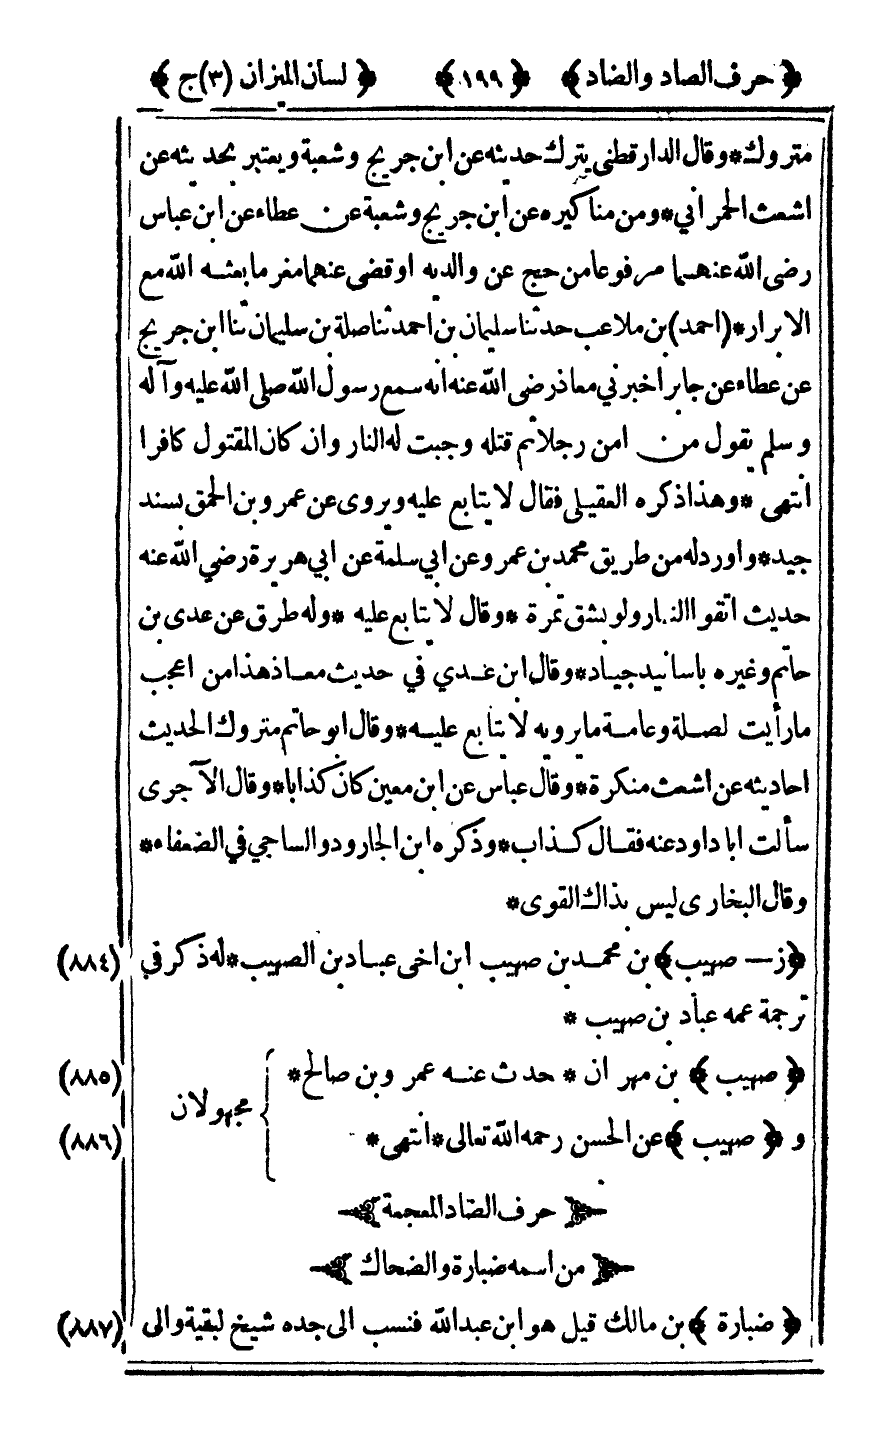 ﴿ حرف الصاد والضاد ﴾ ﴿ ١٩٩ ﴾ ﴿ لسان الميزان (٣)ج ﴾
متروك*وقال الدارقطنى يترك حديثه عن ابن جريج وشعبة ويعتبر بحديثه عن
اشعث الحمراني*ومن مناكيره عن ابن جريج وشعبة عن عطاء عن ابن عباس
رضى الله عنهما مرفوعا من حج عن والديه او قضى عنهما مغرما بعثه الله مع
الابرار*(احمد) بن ملاعب حدثنا سليمان بن احمد ثنا صلة بن سليمان ثنا ابن جريج
عن عطاء عن جابر اخبرني معاذ رضى الله عنه انه سمع رسول الله صلى الله عليه وآله
وسلم يقول من امن رجلا ثم قتله وجبت له النار وان كان المقتول كافرا
انتهى *وهذا ذكره العقيلي فقال لا يتابع عليه ويروى عن عمرو بن الحمق بسند
جيد*واورد له من طريق محمد بن عمرو عن ابي سلمة عن ابي هريرة رضي الله عنه
حديث اتقوا النار ولو بشق تمرة *وقال لا يتابع عليه *وله طرق عن عدى بن
حاتم وغيره باسانيد جياد*وقال ابن عدي في حديث معاذ هذا من اعجب
ما رأيت لصلة وعامة ما يرويه لا يتابع عليه*وقال ابو حاتم متروك الحديث
احاديثه عن اشعث منكرة*وقال عباس عن ابن معين كان كذابا*وقال الآجرى
سألت ابا داود عنه فقال كذاب*وذكره ابن الجارود والساجي في الضعفاء*
وقال البخارى ليس بذاك القوى*
﴿ز— صهيب﴾ بن محمد بن صهيب ابن اخى عباد بن الصهيب*له ذكر في (٨٨٤)
ترجمة عمه عباد بن صهيب *
﴿ صهيب ﴾ بن مهران * حدث عنه عمرو بن صالح* (٨٨٥)
مجهولان
و ﴿ صهيب ﴾ عن الحسن رحمه الله تعالى*انتهى* (٨٨٦)
حرف الضاد المعجمة
من اسمه ضبارة والضحاك
﴿ ضبارة ﴾ بن مالك قيل هو ابن عبدالله فنسب الى جده شيخ لبقية والى (٨٨٧)